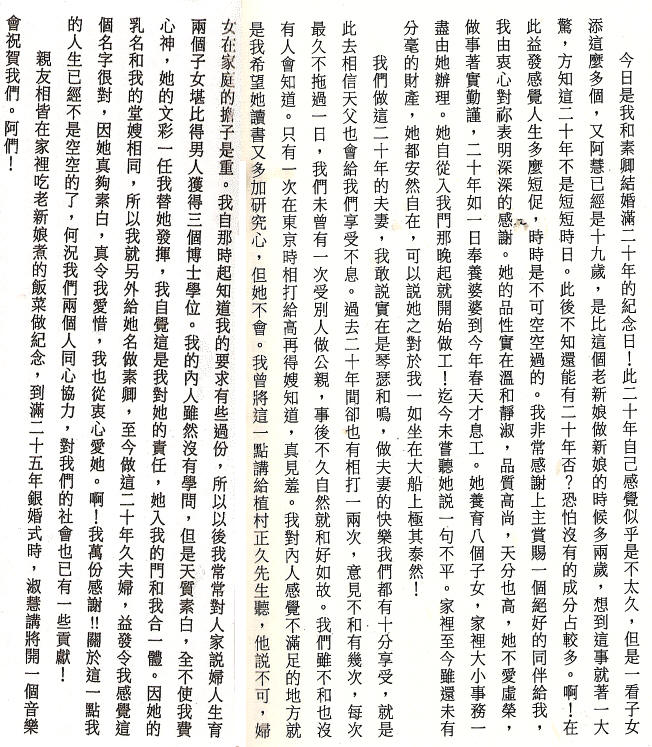 今日是我和素卿結婚滿二十年的紀念日！此二十年自己感覺似乎是不太久，但是一看子女
添這麼多個，又阿慧已經是十九歲，是比這個老新娘做新娘的時候多兩歲，想到這事就著一大
驚，方知這二十年不是短短時日。此後不知還能有二十年否？恐怕沒有的成分占較多。啊！在
此益發感覺人生多麼短促，時時是不可空空過的。我非常感謝上主賞賜一個絕好的同伴給我，
我由衷心對祢表明深深的感謝。她的品性實在溫和靜淑，品質高尚，天分也高，她不愛虛榮，
做事著實勤謹，二十年如一日奉養婆婆到今年春天才息工。她養育八個子女，家裡大小事務一
盡由她辦理。她自從入我門那晚起就開始做工！迄今未嘗聽她說一句不平。家裡至今雖還未有
分毫的財產，她都安然自在，可以說她之對於我一如坐在大船上極其泰然！
我們做這二十年的夫妻，我敢說實在是琴瑟和鳴，做夫妻的快樂我們都有十分享受，就是
此去相信天父也會給我們享受不息。過去二十年間卻也有相打一兩次，意見不和有幾次，每次
最久不拖過一日，我們未曾有一次受別人做公親，事後不久自然就和好如故。我們雖不和也沒
有人會知道。只有一次在東京時相打給高再得嫂知道，真見羞。我對內人感覺不滿足的地方就
是我希望她讀書又多加研究心，但她不會。我曾將這一點講給植村正久先生聽，他說不可，婦
女在家庭的擔子是重。我自那時起知道我的要求有些過份，所以以後我常常對人家說婦人生育
兩個子女堪比得男人獲得三個博士學位。我的內人雖然沒有學問，但是天質素白，全不使我費
心神，她的文彩一任我替她發揮，我自覺這是我對她的責任，她入我的門和我合一體。因她的
乳名和我的堂嫂相同，所以我就另外給她名做素卿，至今做這二十年久夫婦，益發令我感覺這
個名字很對，因她真夠素白，真令我愛惜，我也從衷心愛她。啊！我萬份感謝!!關於這一點我
的人生已經不是空空的了，何況我們兩個人同心協力，對我們的社會也已有一些貢獻！
親友相皆在家裡吃老新娘煮的飯菜做紀念，到滿二十五年銀婚式時，淑慧講將開一個音樂
會祝賀我們。阿們！